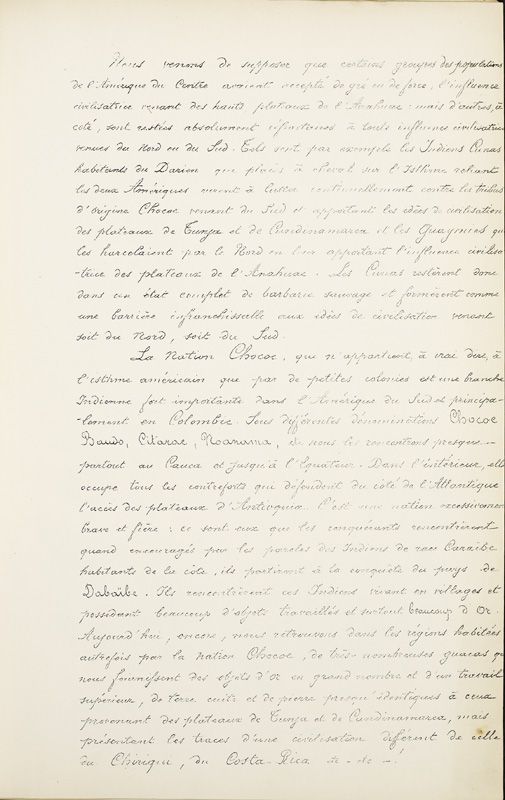 Nous venons de supposer que certains groupes des populations
de l'Amérique du Centre avaient accepté de gré ou de force, l'influence
civilisatrice venant des hauts plateaux de l'Anahuac : mais d'autres, à
côté, sont restées absolument réfractaires à toute influence civilisatrice
venues du Nord ou du Sud. Tels sont par exemple les Indiens Cunas
habitants du Darien que placés à cheval sur l'Isthme reliant
les deux Amériques eurent à lutter continuellement contre les tribus
d'origine Chocoe venant du Sud et apportant les idées de civilisation
des plateaux de Tunja et de Cundinamarca et les Guaymies qui
les harcelaient par le Nord en leur apportant l'influence civilisa-
-trice des plateaux de l'Anahuac. Les Cunas restèrent donc
dans un état complet de barbarie sauvage et formèrent comme
une barrière infranchissable aux idées de civilisation venant
soit du Nord, soit du Sud.
La Nation Chocoe, qui n'appartient, à vrai dire, à
l'isthme américain que par de petites colonies est une branche
Indienne fort importante dans l'Amérique du Sud et principa-
-lement en Colombie. Sous différentes dénominations Chocoe
Baudo, Citarae, Noanama, nous les rencontrons presque
partout au Cauca et jusqu'à l'Equateur. Dans l'intérieur, elle
occupe tous les contreforts qui défendent du côté de l'Atlantique
l'accès des plateaux d'Antioquia. C'est une nation excessivement
brave et fière : ce sont eux que les conquérants rencontrèrent
quand encouragés par les paroles des Indiens de race Caraïbe
habitants de la côte, ils partirent à la conquête du pays de
Dabaïbe. Ils rencontrèrent ces Indiens vivant en villages et
possédant beaucoup d'objets travaillés et surtout beaucoup d'Or.
Aujourd'hui, encore, nous retrouvons dans les régions habitées
autrefois par la nation Chocoe, de très-nombreuses guacas qui
nous fournissent des objets d'or en grand nombre et d'un travail
supérieur, de terre cuite et de pierre presqu'identiques à ceux
provenant des plateaux de Tunja et de Cundinamarca, mais
présentant les traces d'une civilisation différent de celle
du Chiriqui, du Costa-Rica